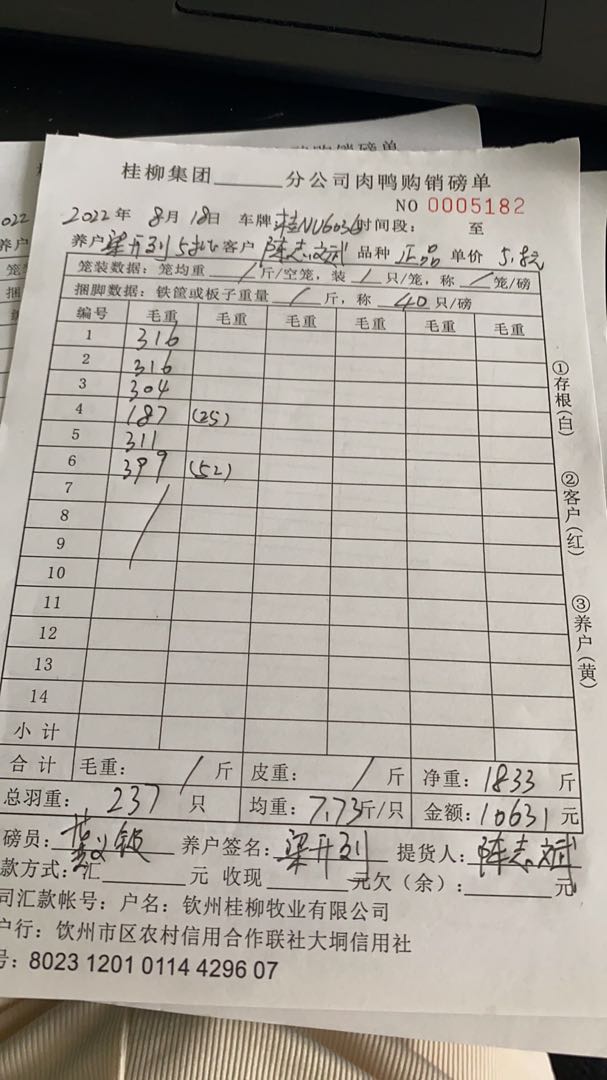 购销磅单
桂柳集团______分公司肉鸭购销磅单
NO 0005182
2022年 8月 18日 车牌 桂NU6036 时间段: 至
养户 梁开列 5批 客户 陈志斌 品种 正品 单价 5.8元
笼装数据: 笼均重 / 斤/空笼, 装 / 只/笼, 称 / 笼/磅
捆脚数据: 铁筐或板子重量 / 斤, 称 40 只/磅
编号 毛重 毛重 毛重 毛重 毛重 毛重
1 316
2 316
3 304
4 187 (25)
5 311
6 399 (52)
7
8
9
10
11
12
13
14
小计
合计 毛重: / 斤 皮重: / 斤 净重: 1833 斤
总羽重: 237 只 均重: 7.73斤/只 金额: 10631 元
磅员: 养户签名: 梁开列 提货人: 陈志斌
款方式: 汇______元 收现______元欠(余):______元
司汇款帐号: 户名: 钦州桂柳牧业有限公司
户行: 钦州市区农村信用合作联社大垌信用社
号: 8023 1201 0114 4296 07
①存根(白)
②客户(红)
③养户(黄)
022
养户
笼
捆